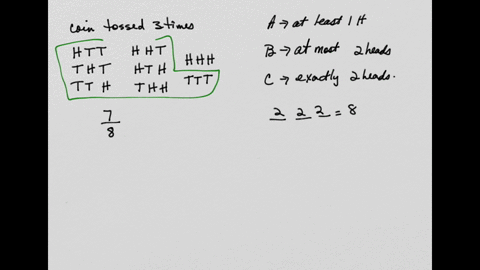 coin tossed 3 times
HTT HHT
THT HTH HHH
TTH THH TTT
7
8
A → at least 1 H
B → at most 2 heads
C → exactly 2 heads.
2 2 2 = 8